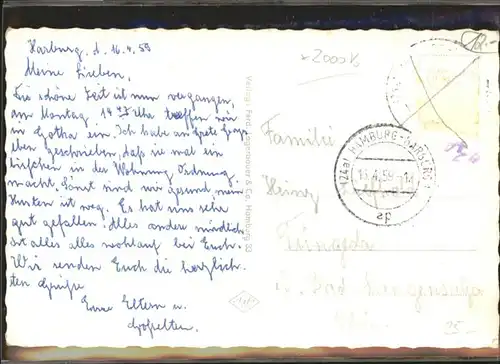 Harburg, d. 16.4.59
Meine Lieben,
Die schöne Zeit ist nun vergangen,
am Montag, 14 Uhr treffen wir
in Gotha ein. Ich habe an Grete
eben geschrieben, daß sie mal ein
bißchen in der Wohnung Ordnung
macht. Sonst sind wir gesund, mein
Husten ist weg. Es hat uns sehr
gut gefallen. Alles andere mündlich.
Ist alles alles wohlauf bei Euch.
Wir senden Euch die herzlich-
sten Grüße
Eure Eltern u.
Verlag: Ferd. Lagerbauer & Co., Hamburg 33
2000 K
Familie
Heinz
Bad Langensalza
(24a) HAMBURG-HARBURG
16.4.59
ap
25.-